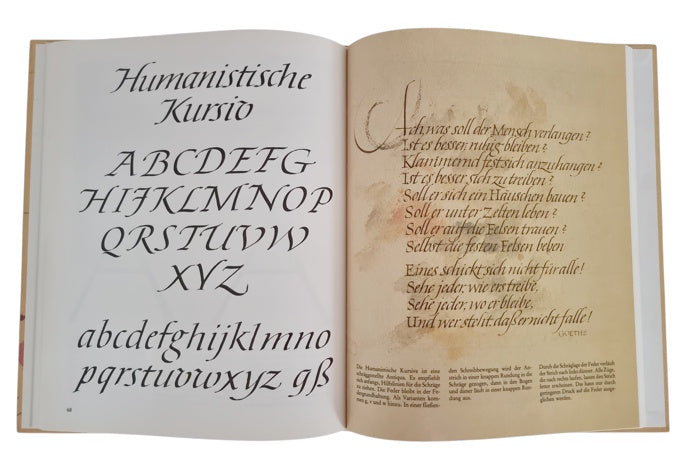 Humanistische
Kursiv
ABCDEFG
HIJKLMNOP
QRSTUVW
XYZ
abcdefghijklmno
pqrstuvvwxyz gß
68
Ach, was soll der Mensch verlangen?
Ist es besser, ruhig bleiben?
Klammernd fest sich anzuhangen?
Ist es besser sich zu treiben?
Soll er sich ein Häuschen bauen?
Soll er unter Zelten leben?
Soll er auf die Felsen trauen?
Selbst die festen Felsen beben
Eines schickt sich nicht für alle!
Sehe jeder, wie er's treibe,
Sehe jeder, wo er bleibe,
Und wer steht, daß er nicht falle!
GOETHE
Die Humanistische Kursive ist eine
schräggestellte Antiqua. Es empfiehlt
sich anfangs, Hilfslinien für die Schräge
zu ziehen. Die Feder bleibt in der Fe-
dergrundhaltung. Als Varianten kom-
men g, v und w hinzu. In einer fließen-
den Schreibbewegung wird der An-
strich in einer knappen Rundung in die
Schräge gezogen, dann in den Bogen
und dieser läuft in einer knappen Run-
dung aus.
Durch die Schräglage der Feder verläuft
der Strich nach links dünner. Alle Züge,
die nach rechts laufen, lassen den Strich
fetter erscheinen. Das kann nur durch
geringeren Druck auf die Feder ausge-
glichen werden.